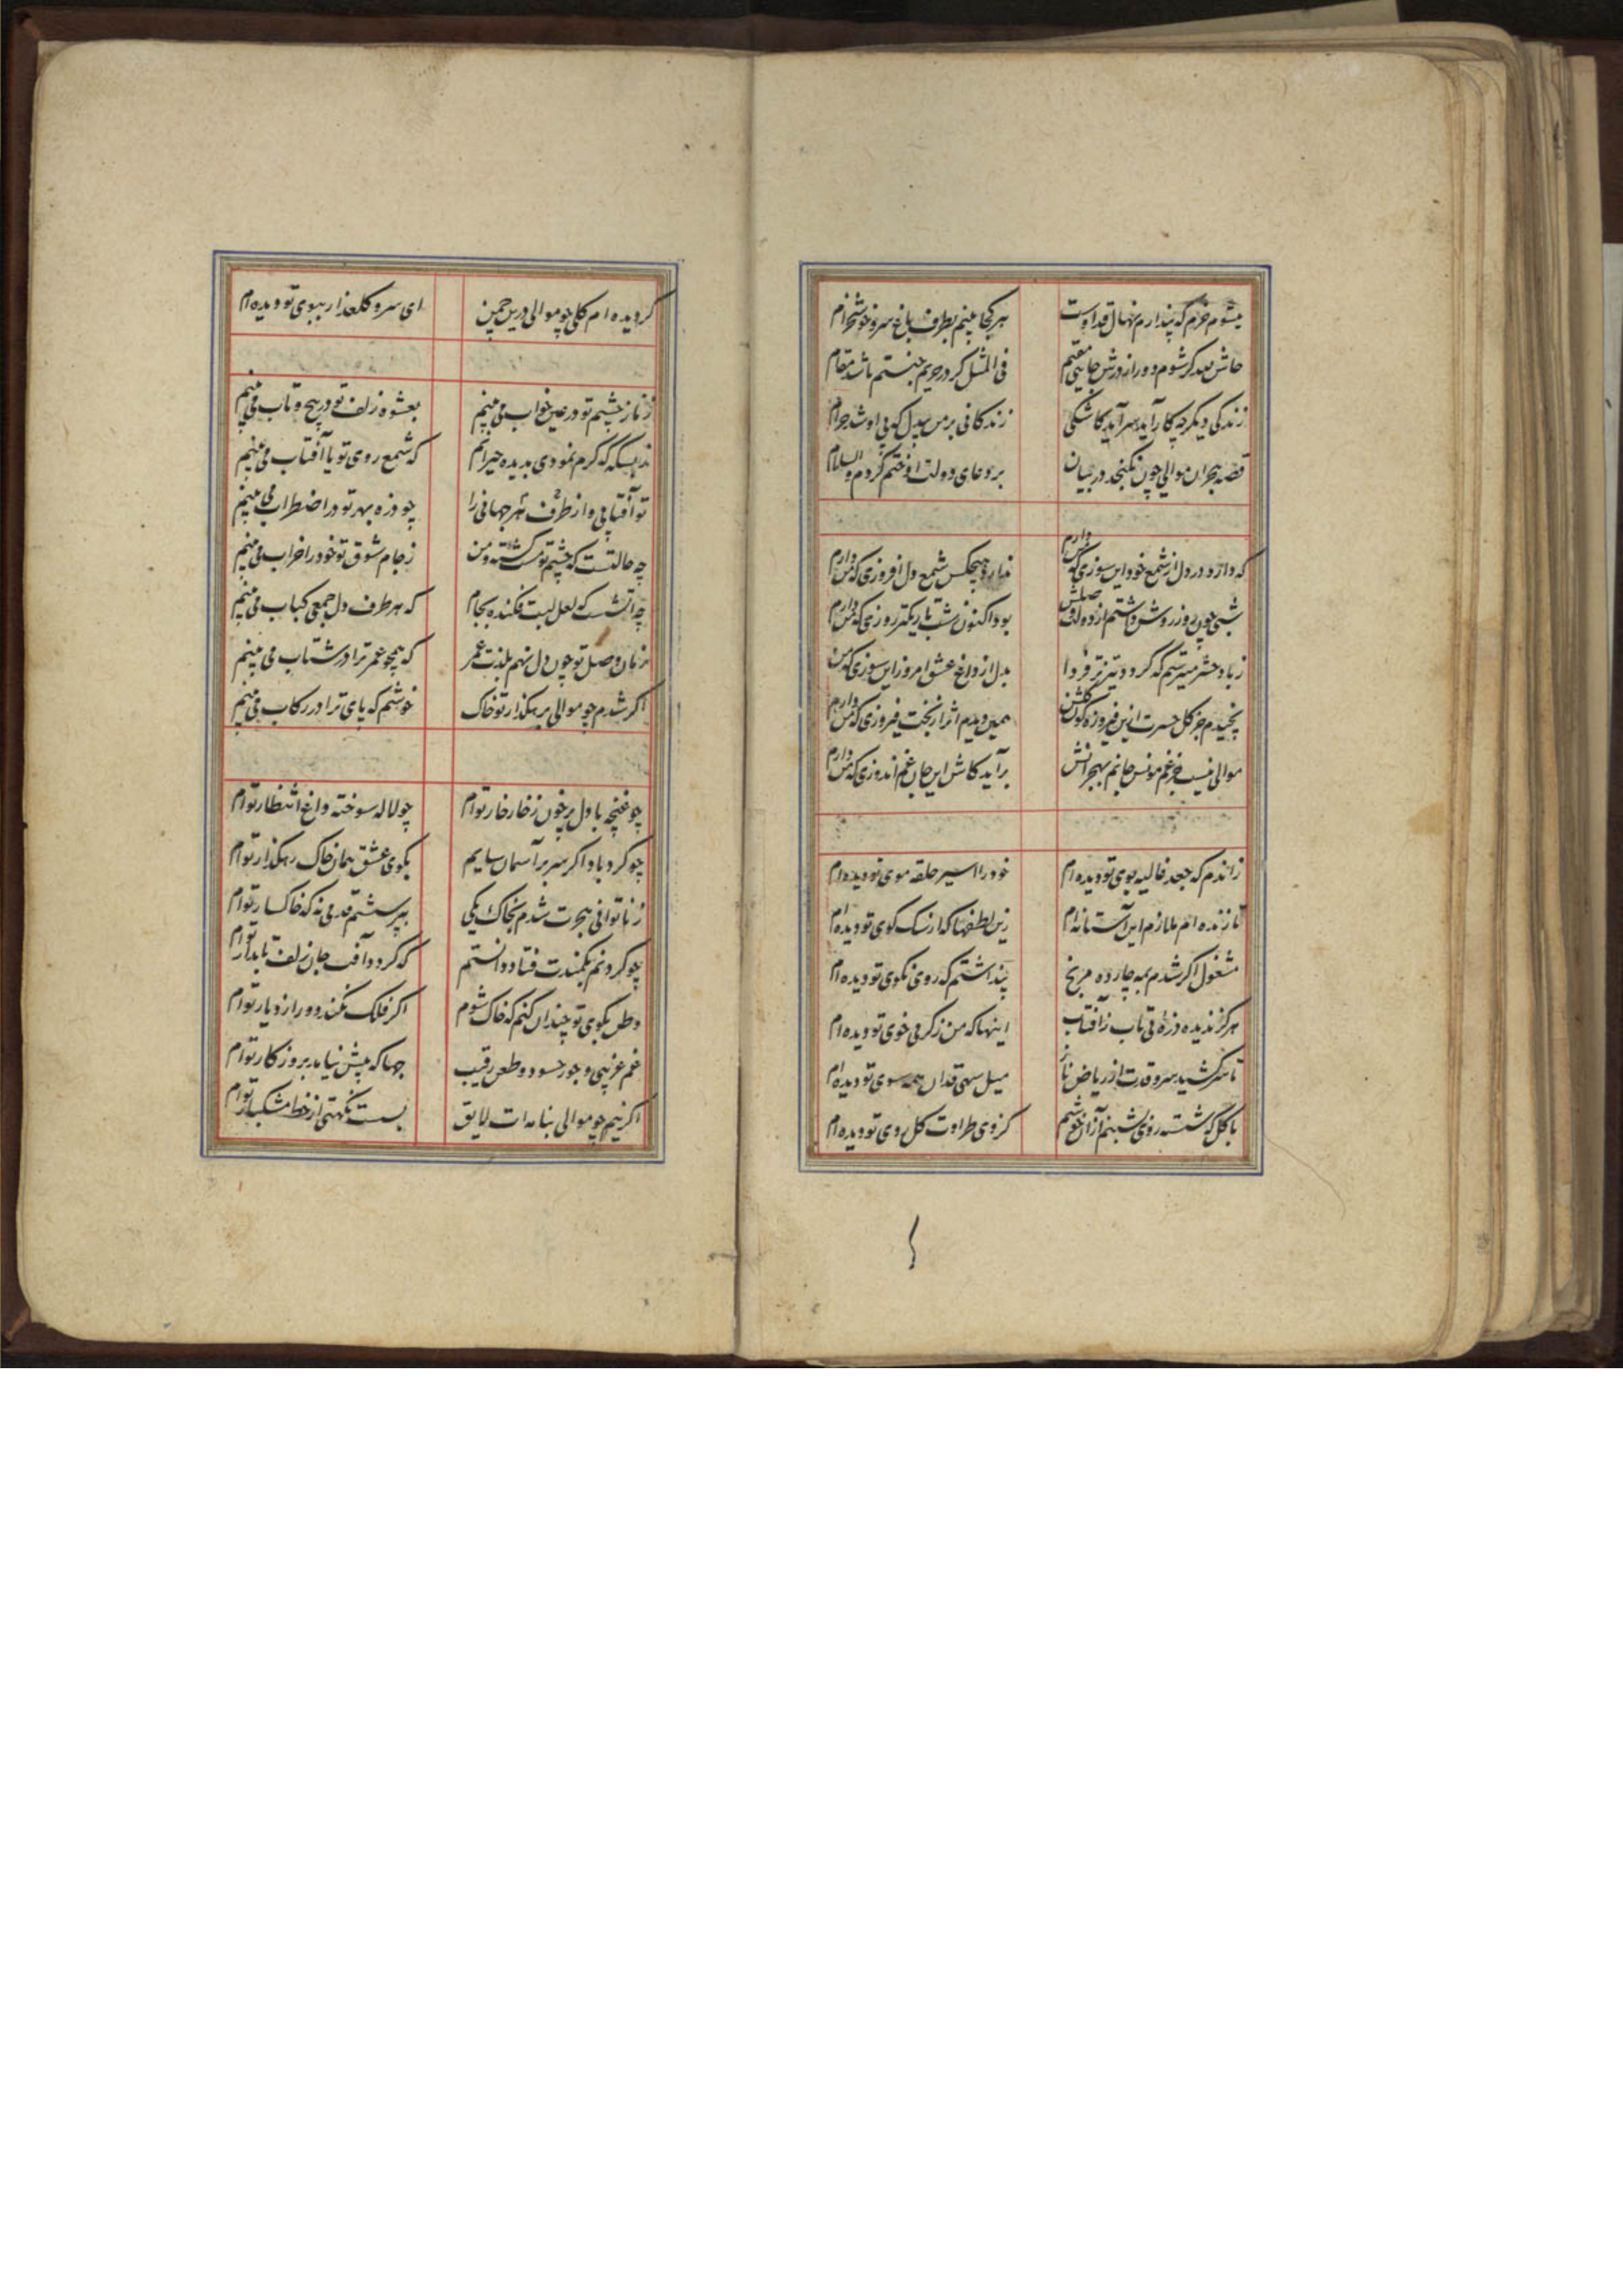 میشوم خرم که پندارم نهال قد اوست هر کجا بینم بطرف باغ سرو خوشخرام
حاش لله کر شوم دور از درش جایی مقیم فی المثل کر در حریم جنتم باشد مقام
زندکی دیکر چه کار آید سرآید کاشکی زندکانی بر من بیدل که بی او شد حرام
قصه هجران موالی چون نکنجد در بیان بر دعای دولت او ختم کردم والسلام
که دارد در دل از شمع خود این سوزی که من دارم ندارد هیچکس شمع دل افروزی که من دارم
شبی چون روز روشن داشتم از دولت وصلش بود اکنون شب تاریکتر روزی که من دارم
زباد حشر میترسم که کردد تیزتر فردا بدل از داغ عشق امروز این سوزی که من
نچیدم جز کل حسرت ازین فیروزه کون کلشن همین دیدم اثر از بخت فیروزی که من دارم
موالی نیست جز غم مونس جانم بهجرانش برآید کاش این جان غم اندوزی که من دارم
زاندم که جعد غالیه بوی تو دیده ام خود را اسیر حلقه موی تو دیده ام
تا زنده ام ملازم این آستانه ام زین لطفها که از سک کوی تو دیده ام
مشغول اکر شدم بمه چارده مرنج پنداشتم که روی نکوی تو دیده ام
هرکز ندیده ذره بی تاب زآفتاب اینها که من زکرمی خوی تو دیده ام
تا سر کشید سرو قدت از ریاض ناز میل سهی قدان همه سوی تو دیده ام
با کل که شسته روی بشبنم ازان خوشم کز وی طراوت کل روی تو دیده ام
کردیده ام کلی چو موالی درین چمن ای سرو کلعذار ببوی تو دیده ام
زناز چشم تو در عین خواب می بینم بعشوه زلف تو در پیچ و تاب می بینم
ز بسکه کرم نمودی بدیده حیرانم که شمع روی تو یا آفتاب می بینم
تو آفتابی و از هر طرف جهانی را چو ذره بهر تو در اضطراب می بینم
چه حالتست که چشم تو مست کشته و من زجام شوق تو خود را خراب می بینم
چه آتشست که لعل لبت فکنده بجام که هر طرف دل جمعی کباب می بینم
زمان وصل تو چون دل نهم بلذت عمر که همچو عمر ترا در شتاب می بینم
اکر شدم چو موالی برهکذار تو خاک خوشم که پای ترا در رکاب می بینم
چو غنچه با دل پر خون زخار خار توام چو لاله سوخته داغ انتظار توام
چو کردباد اکر سر بر آسمان سایم بکوی عشق همان خاک رهکذار توام
زناتوانی هجرت شدم بخاک یکی بپرسشم قدمی نه که خاکسار توام
چو کردنم بکمندت فتاد دانستم که کردد آفت جان زلف تابدار توام
وطن بکوی تو چندان کنم که خاک شوم اکر فلک نکند دور از دیار توام
غم غریبی و جور حسود و طعن رقیب چها که پیش نیامد بروزکار توام
اکر نیم چو موالی بنامه ات لایق بس است نکهتی از خط مشکبار توام